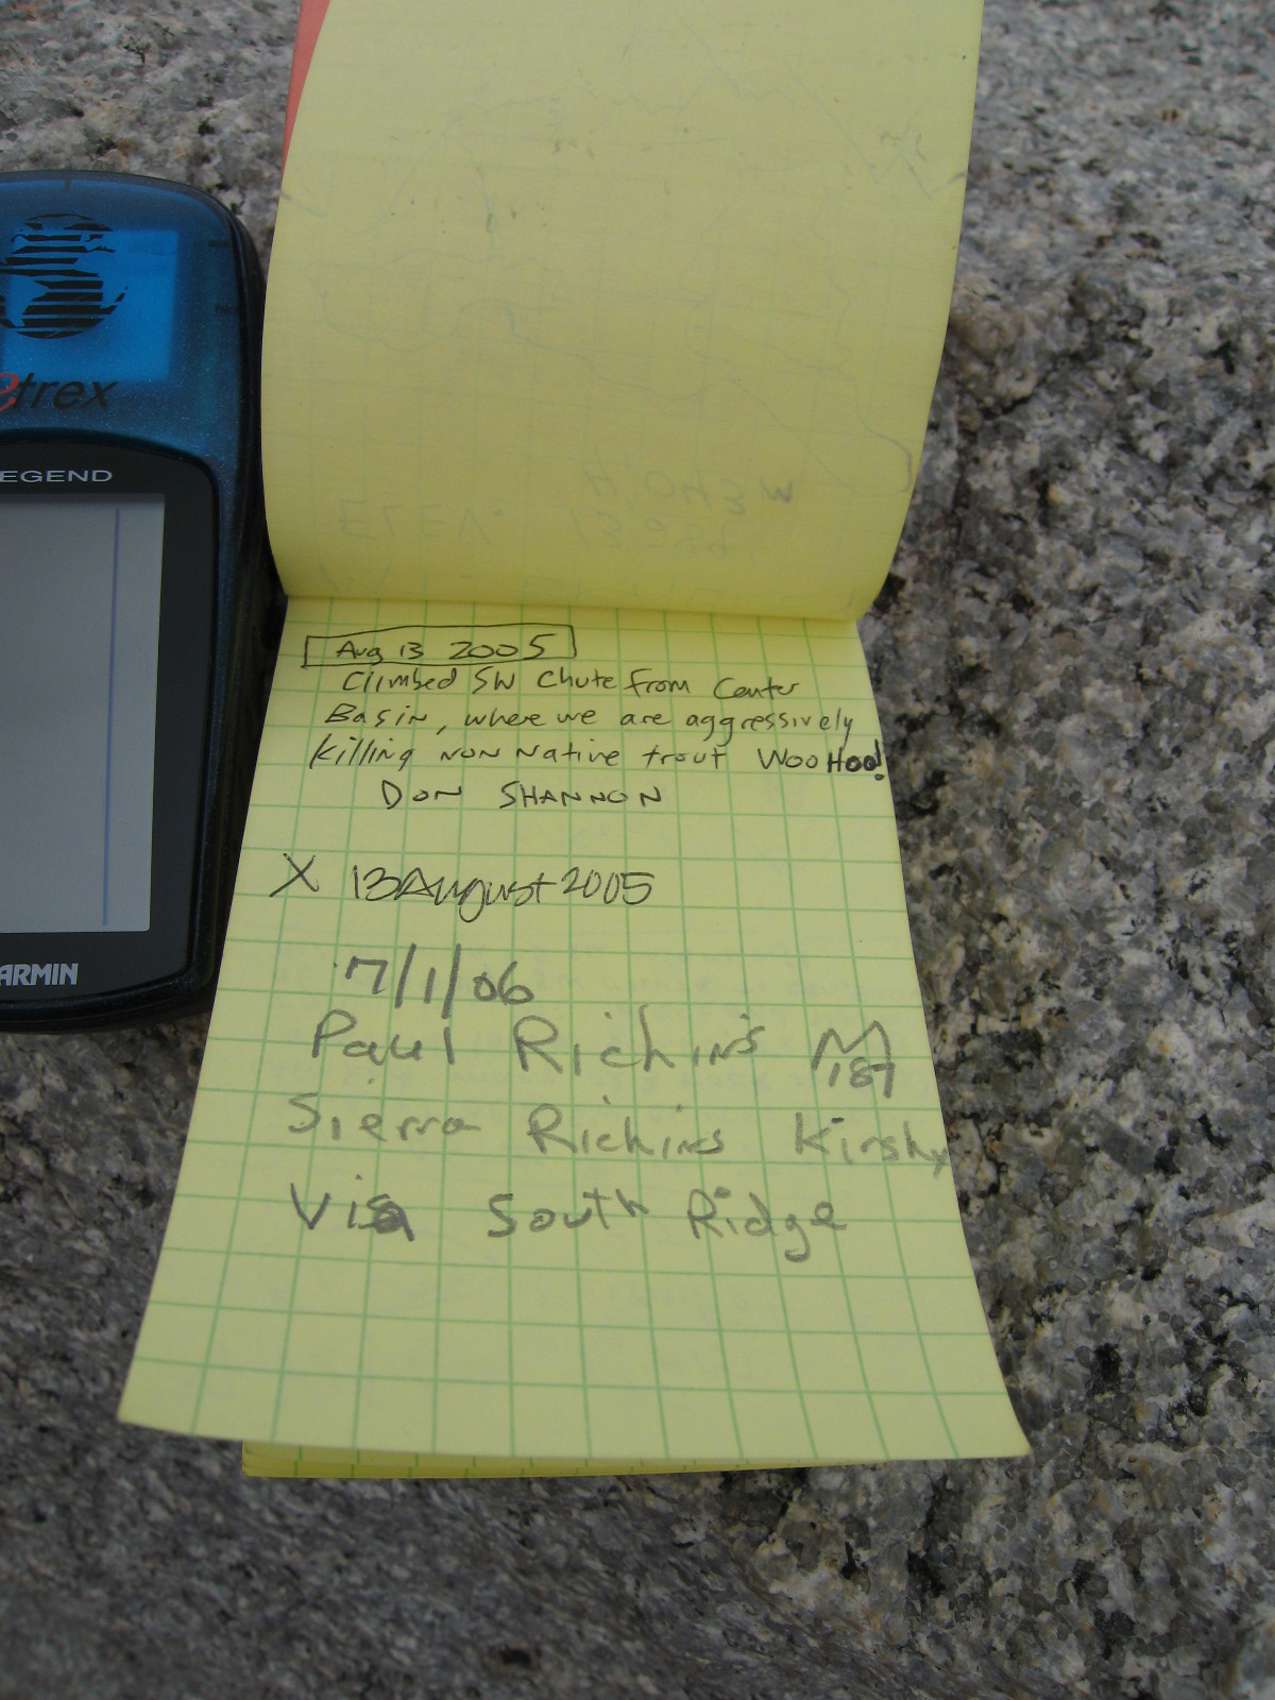 etrex
EGEND
ARMIN
Aug 13 2005
Climbed SW Chute from Center
Basin, where we are aggressively
killing non native trout WooHoo!
DON SHANNON
X 13 August 2005
7/1/06
Paul Richins M
187
Sierra Richins Kirshy
Via South Ridge